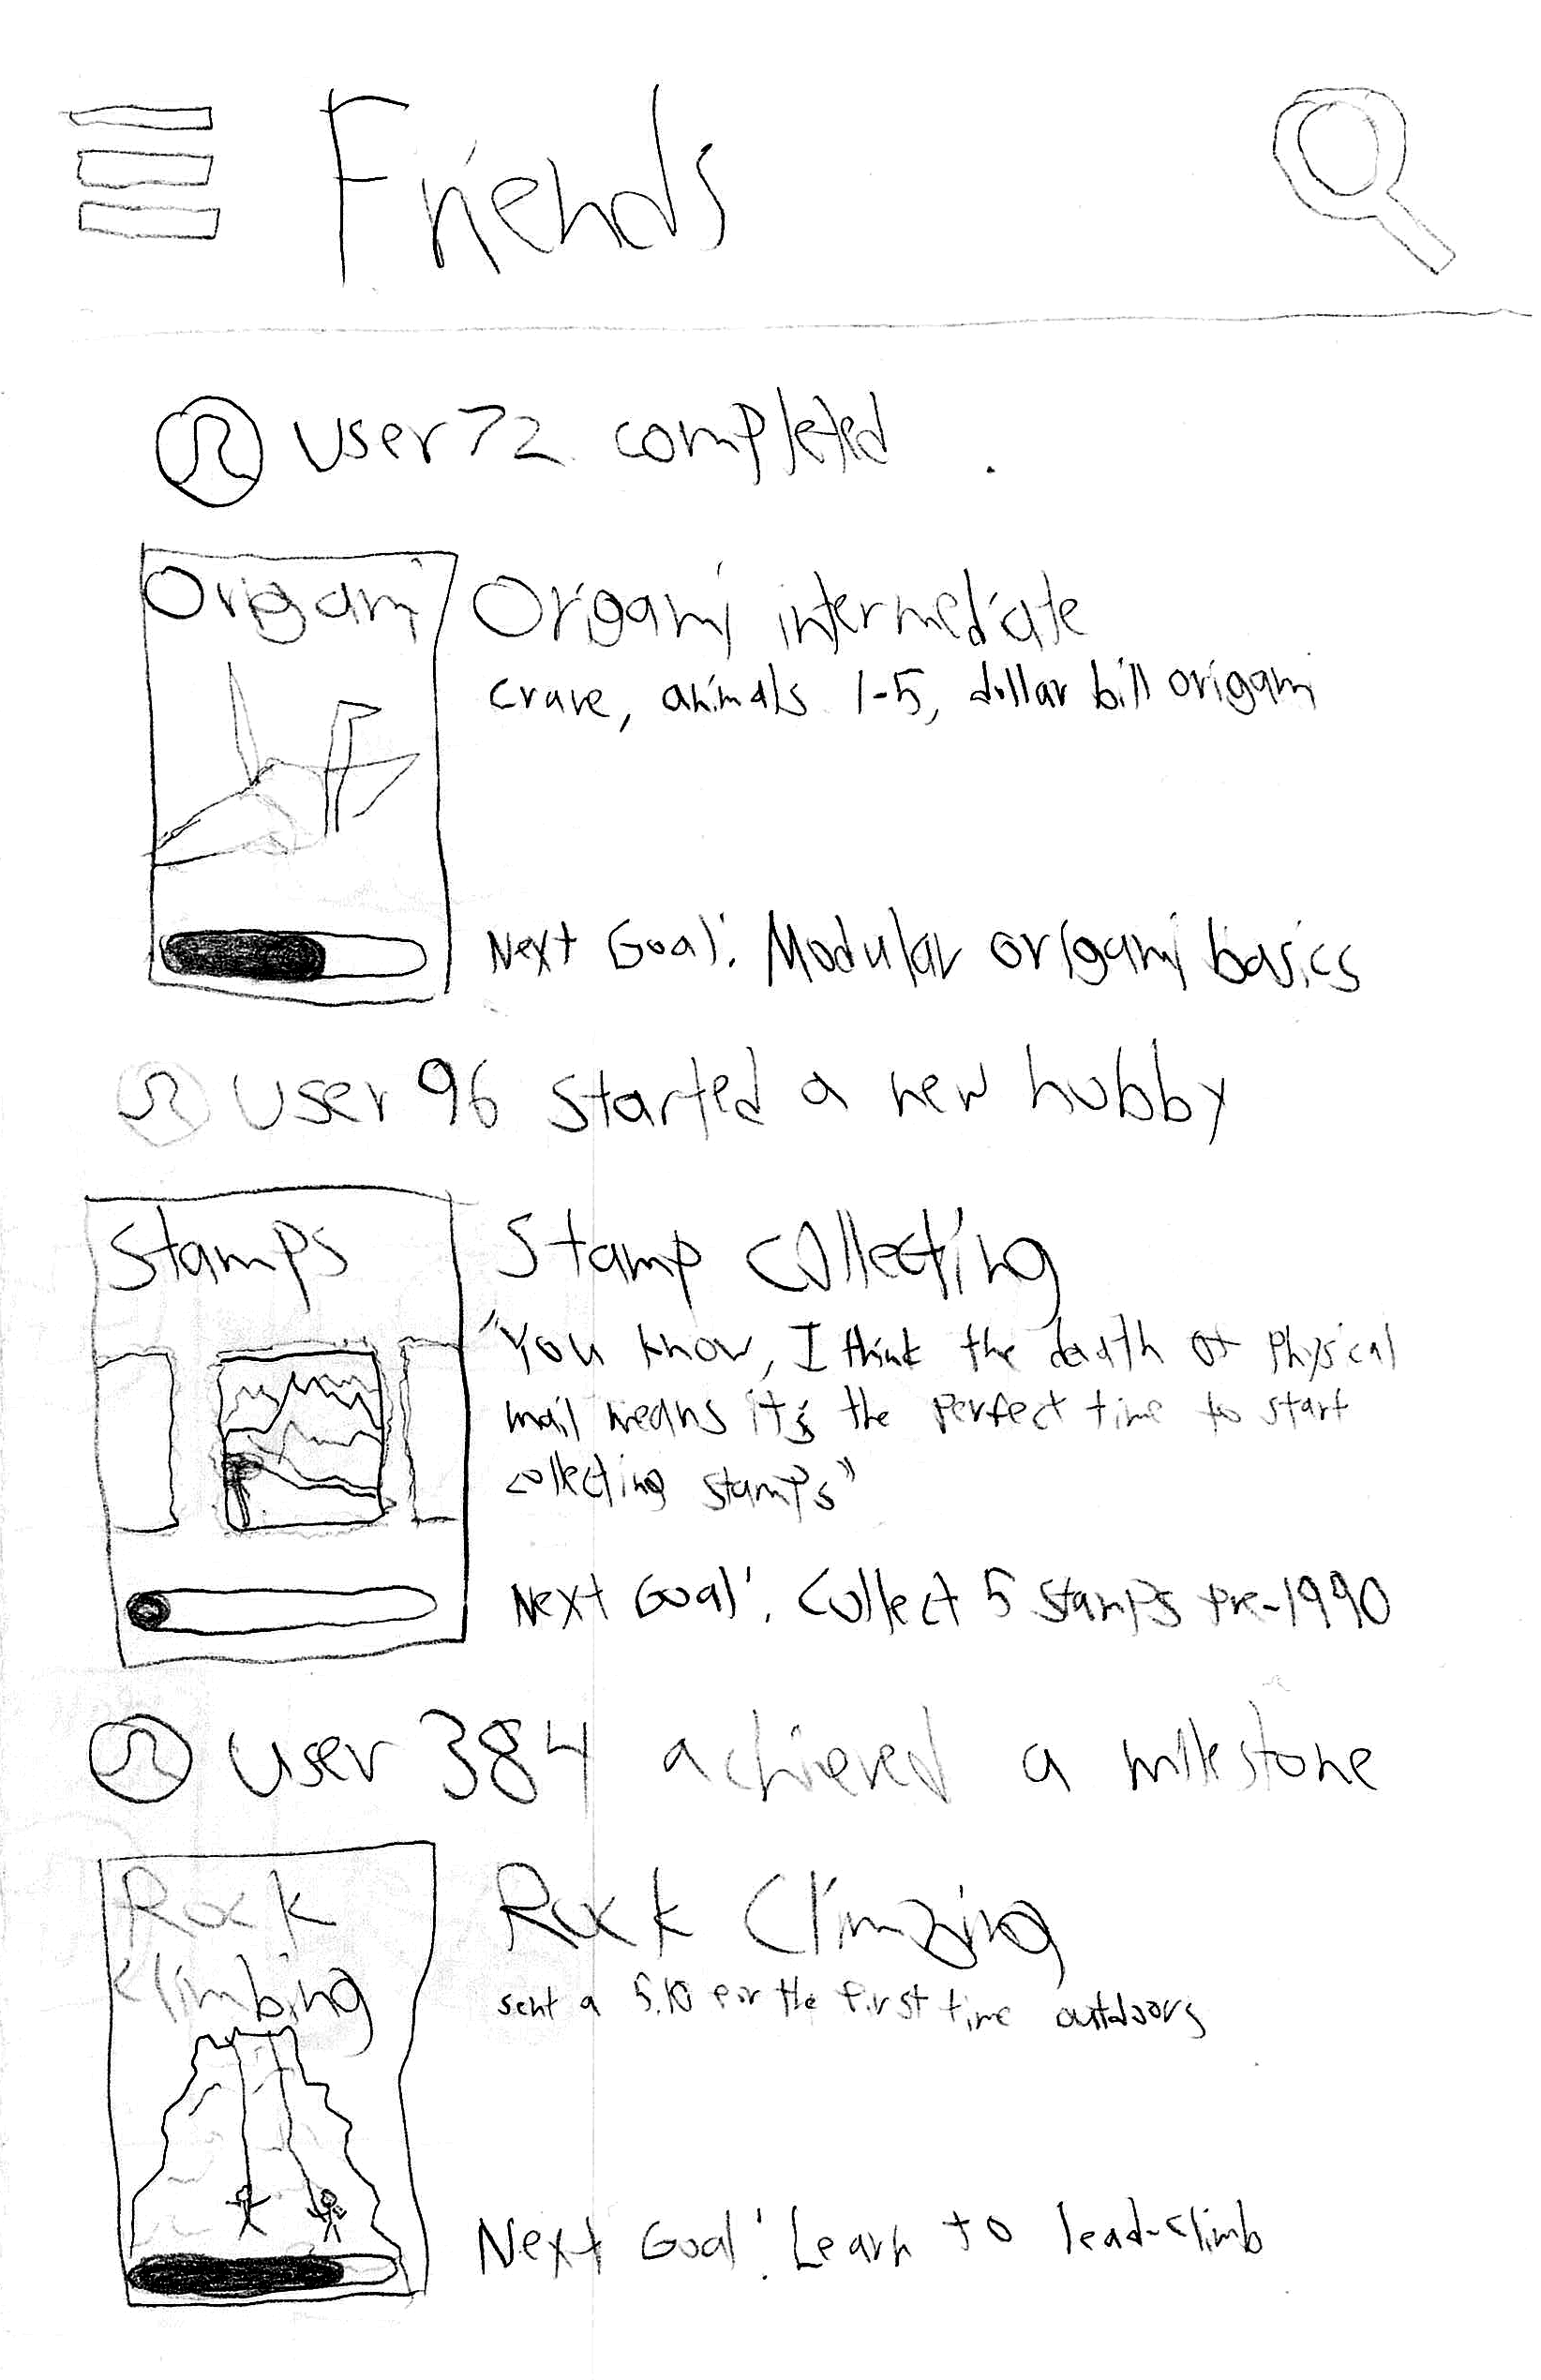 Friends
user 72 completed
Origami
Origami intermediate
crane, animals 1-5, dollar bill origami
Next Goal: Modular origami basics
user 96 started a new hobby
Stamps
Stamp collecting
"You know, I think the death of physical
mail means it's the perfect time to start
collecting stamps"
Next Goal: Collect 5 stamps pre-1990
user 384 achieved a milestone
Rock
climbing
Rock Climbing
sent a 5.10 for the first time outdoors
Next Goal: Learn to lead-climb